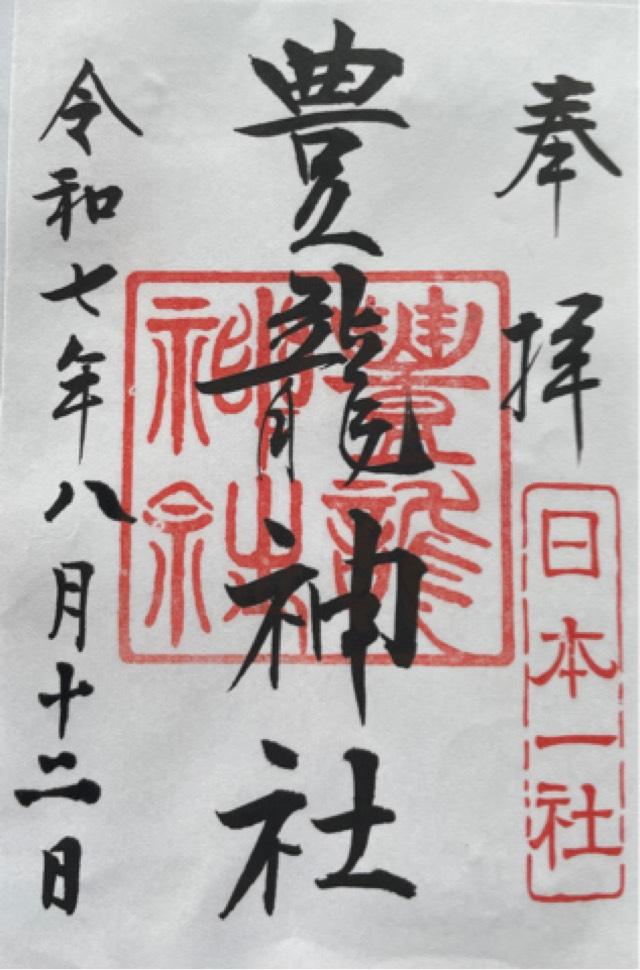 奉拝
日本一社
豊龍神社
豊龍
神社
令和七年八月十二日